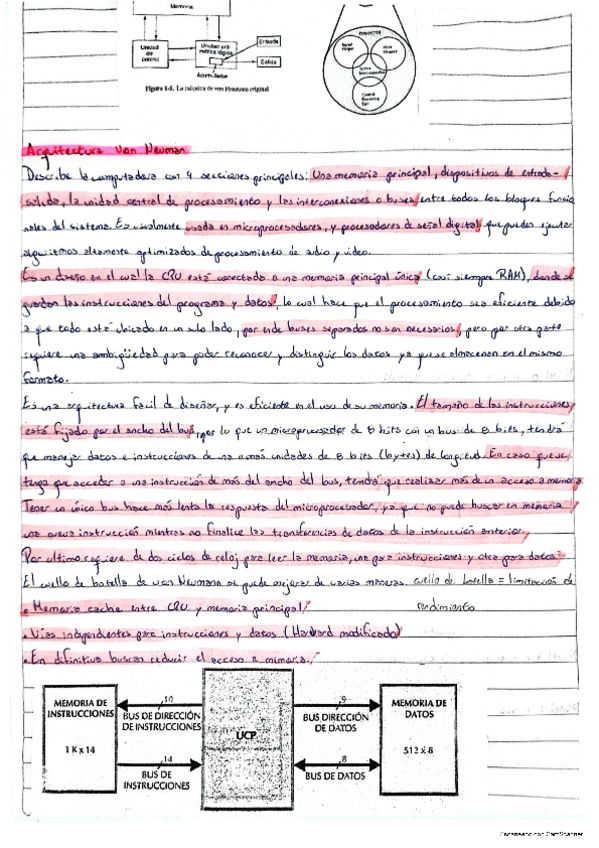 Memoria
Unidad de control
Unidad aritmética lógica
Entrada
Salida
Acumulador
Figura 1-5. La máquina de von Neumann original
COMPUTER
Arquitectura Von Neuman
Describe la computadora con 4 secciones principales: Una memoria principal, dispositivos de entrada-
salida, la unidad central de procesamiento y las interconexiones o buses entre todos los bloques funcio
nales del sistema. Es usualmente usada en microprocesadores, y procesadores de señal digital que pueden ejecutar
algoritmos altamente optimizados de procesamiento de audio y video.
Es un diseño en el cual la CPU está conectado a una memoria principal única (casi siempre RAM), donde se
guardan las instrucciones del programa y datos, lo cual hace que el procesamiento sea eficiente debido
a que todo está ubicado en un solo lado, por ende buses separados no son necesarios, pero por otra parte
requiere una ambigüedad para poder reconocer y distinguir los datos ya que se almacenan en el mismo
formato.
Es una arquitectura fácil de diseñar, y es eficiente en el uso de su memoria. El tamaño de las instrucciones
está fijado por el ancho del bus, por lo que un microprocesador de 8 bits con un bus de 8 bits, tendrá
que manejar datos e instrucciones de una o más unidades de 8 bits (bytes) de longitud. En caso que
tenga que acceder a una instrucción de más del ancho del bus, tendrá que realizar más de un acceso a memoria
Tener un único bus hace más lenta la respuesta del microprocesador, ya que no puede buscar en memoria
una nueva instrucción mientras no finalice las transferencias de datos de la instrucción anterior.
Por ultimo requiere de dos ciclos de reloj para leer la memoria, una para instrucciones y otra para datos.
El cuello de botella de von Neumann se puede mejorar de varias maneras. cuello de botella = limitación de
rendimiento
• Memoria cache entre CPU y memoria principal
• Vías independientes para instrucciones y datos (Harvard modificado)
• En definitiva buscan reducir el acceso a memoria.
MEMORIA DE INSTRUCCIONES
1 K x 14
10
BUS DE DIRECCIÓN DE INSTRUCCIONES
14
BUS DE INSTRUCCIONES
UCP
9
BUS DIRECCIÓN DE DATOS
8
BUS DE DATOS
MEMORIA DE DATOS
512 x 8
Escaneado con CamScanner